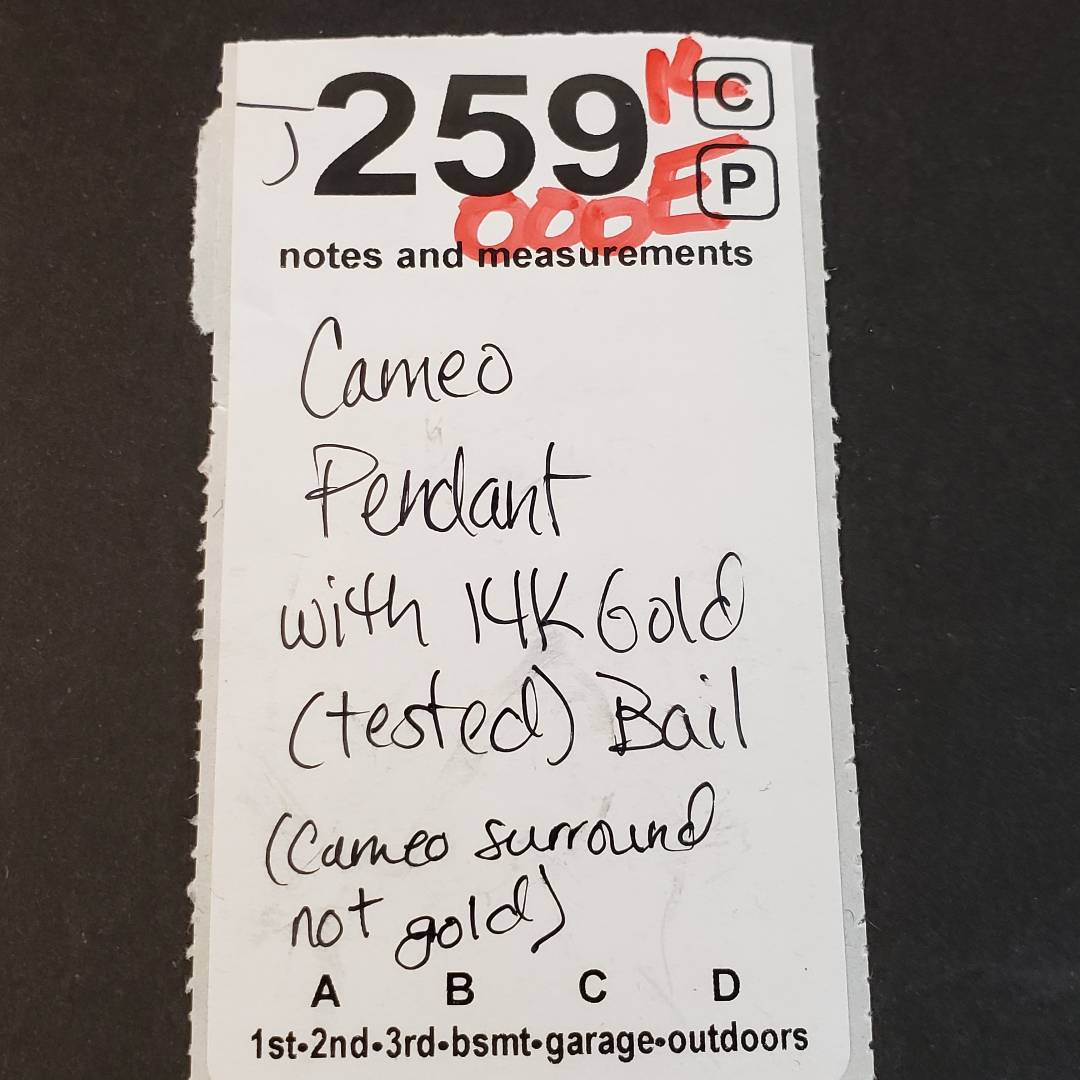 J 259 K C
000E P
notes and measurements
Cameo
Pendant
with 14K Gold
(tested) Bail
(Cameo surround
not gold)
A B C D
1st•2nd•3rd•bsmt•garage•outdoors